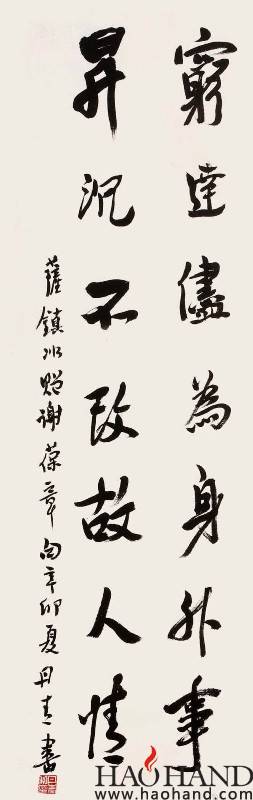 窮達儘為身外事
昇沉不改故人情
薩鎮冰贈謝葆章句辛卯夏丹青書
HAOHAND
www.haohand.com